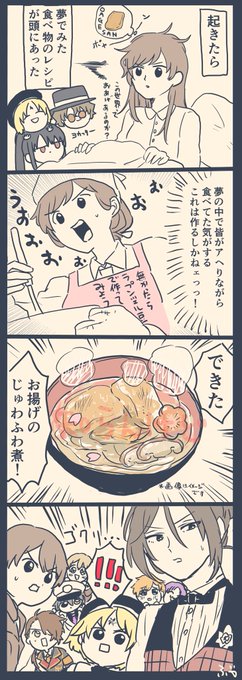 起きたら
OAGE
SAN
ボヤ
この世界って
おあげあるのか?
夢でみた
食べ物のレシピ
が頭にあった
ヨカッター
夢の中で皆がアヘりながら
食べてた気がする
これは作るしかねェっっ!
うおぉぉぉ
無かったら
ラプンツェル豆
で作って
みよう
できた
お揚げの
じゅわふわ煮!
*画像はイメージ
です
!!!